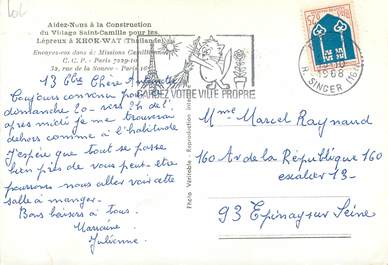 Aidez-Nous à la Construction
du Village Saint-Camille pour les
Lépreux à KHOK-WAT (Thaïlande)
Envoyez vos dons à : Missions
C. C. P. - Paris 7029-10
32, rue de la Source - Paris 16
13 Chère
Toujours convenu pour
dimanche 20 - vers 2h de l'
après midi je me trouverai
dehors comme à l'habitude
J'espère que tout se passe
bien près de vous peut-être
pourrons nous aller voir cette
salle à manger.
Bons baisers à tous.
Julienne.
Photo Véritable - Reproduction
GARDEZ VOTRE VILLE PROPRE
1968
R. SINGER (16
Mme Marcel Raynaud
160 Av de la République 160
escalier 13 -
93 Epinay sur Seine